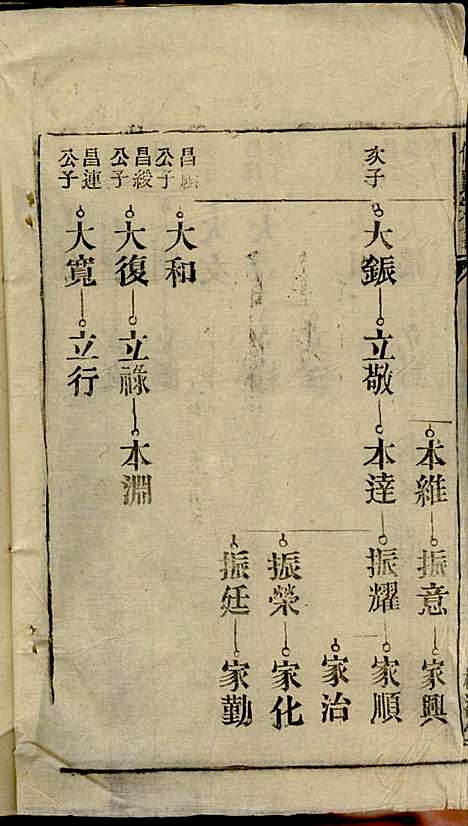 本維 振意 家興
亥子 大鋠 立敬 本達 振耀 家順
家治
振榮 家化
振廷 家勤
昌 公子 大和
昌緩公子 大復 立祿 本淵
昌連公子 大寬 立行